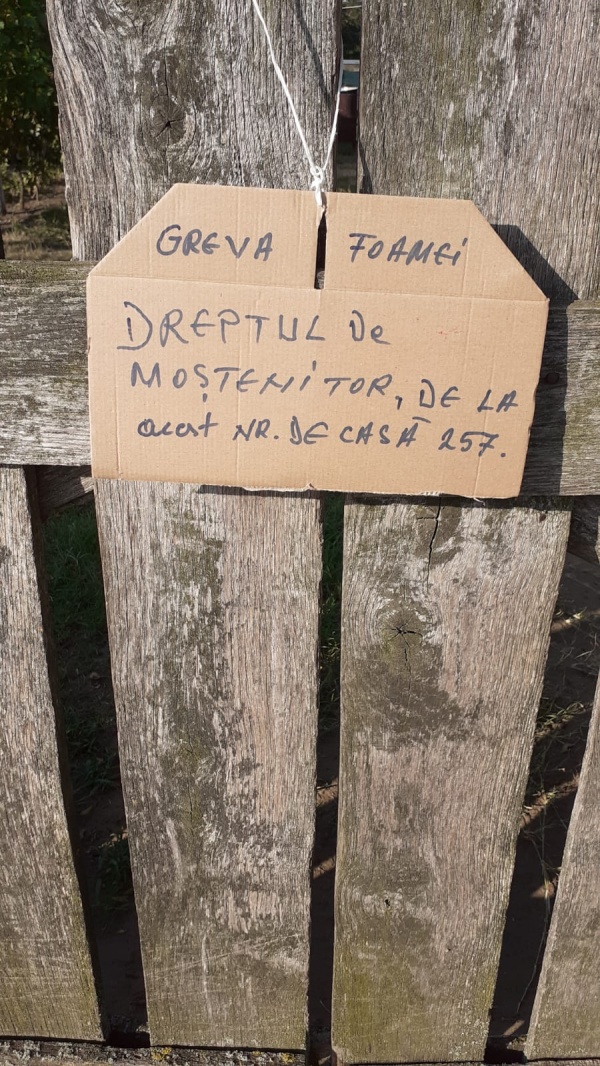 GREVA FOAMEi
DREPTUL De
MOȘTENiTOR, DE LA
acest NR. DE CASĂ 257.